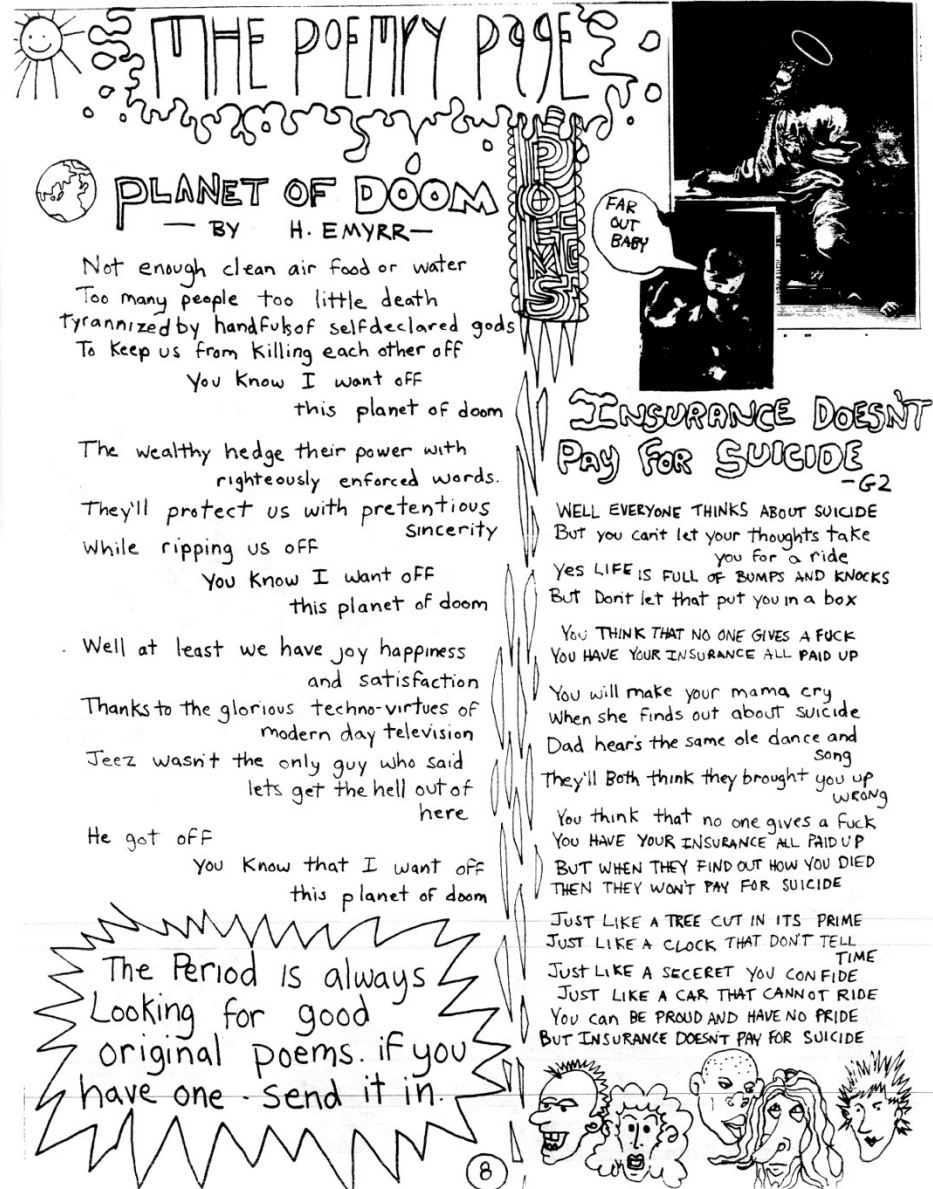 THE POETRY PAGE
POEMS
PLANET OF DOOM
— BY H. EMYRR —
Not enough clean air food or water
Too many people too little death
tyrannized by handfuls of selfdeclared gods
To keep us from killing each other off
You know I want off
this planet of doom
The wealthy hedge their power with
righteously enforced words.
They'll protect us with pretentious
sincerity
while ripping us off
You know I want off
this planet of doom
Well at least we have joy happiness
and satisfaction
Thanks to the glorious techno-virtues of
modern day television
Jeez wasn't the only guy who said
lets get the hell out of
here
He got off
You know that I want off
this planet of doom
The Period is always
Looking for good
original poems. if you
have one - send it in.
FAR
OUT
BABY
INSURANCE DOESN'T
PAY FOR SUICIDE
-G2
WELL EVERYONE THINKS ABOUT SUICIDE
But you can't let your thoughts take
you for a ride
Yes LIFE IS FULL OF BUMPS AND KNOCKS
But Don't let that put you in a box
You THINK THAT NO ONE GIVES A FUCK
YOU HAVE YOUR INSURANCE ALL PAID UP
You will make your mama cry
When she finds out about suicide
Dad hear's the same ole dance and
song
They'll Both think they brought you up
WRONG
You think that no one gives a fuck
YOU HAVE YOUR INSURANCE ALL PAID UP
BUT WHEN THEY FIND OUT HOW YOU DIED
THEN THEY WON'T PAY FOR SUICIDE
JUST LIKE A TREE CUT IN ITS PRIME
JUST LIKE A CLOCK THAT DON'T TELL
TIME
JUST LIKE A SECERET YOU CONFIDE
JUST LIKE A CAR THAT CANNOT RIDE
You can BE PROUD AND HAVE NO PRIDE
BUT INSURANCE DOESN'T PAY FOR SUICIDE
8